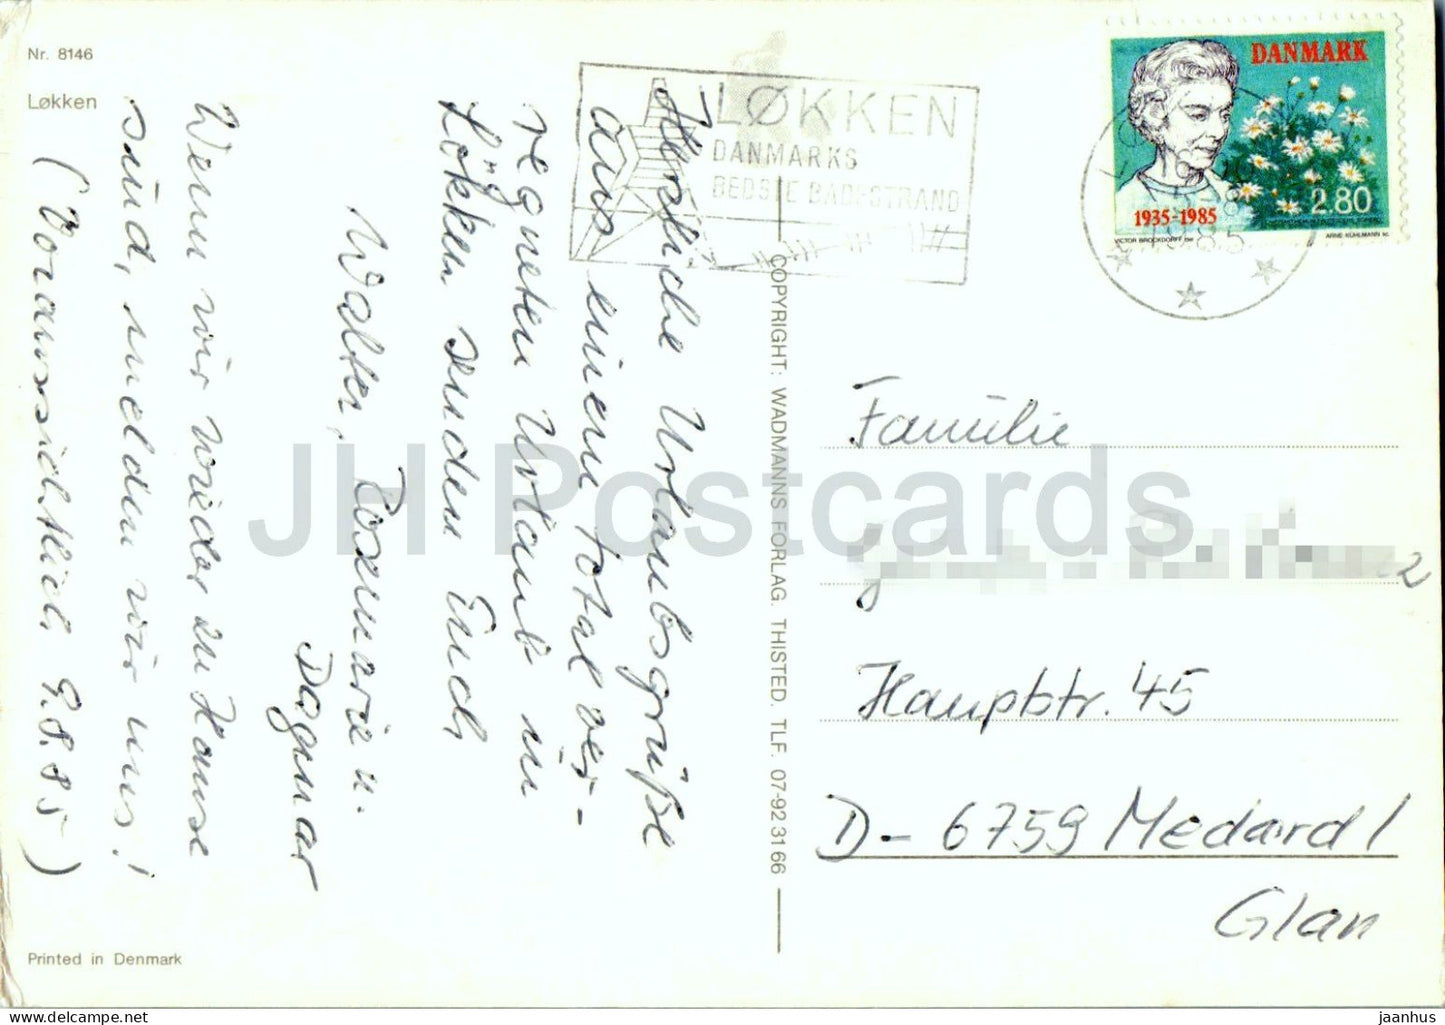 Nr. 8146
Løkken
Herzliche Urlaubsgrüße
aus einem total ver-
regneten Urlaub in
Lökken senden Euch
Walter, Rosemarie u.
Dagmar
Wenn wir wieder zu Hause
sind, melden wir uns!
(Voraussichtlich 9.8.85)
Printed in Denmark
COPYRIGHT: WADMANNS FORLAG. THISTED. TLF. 07-92 31 66
LØKKEN
DANMARKS
BEDSTE BADESTRAND
DANMARK
1935-1985
2.80
VICTOR BROCKDORFF del
ARNE KÜHLMANN sc
Familie
Hauptstr. 45
D-6759 Medard/
Glan
JH Postcards
jaanhus.com